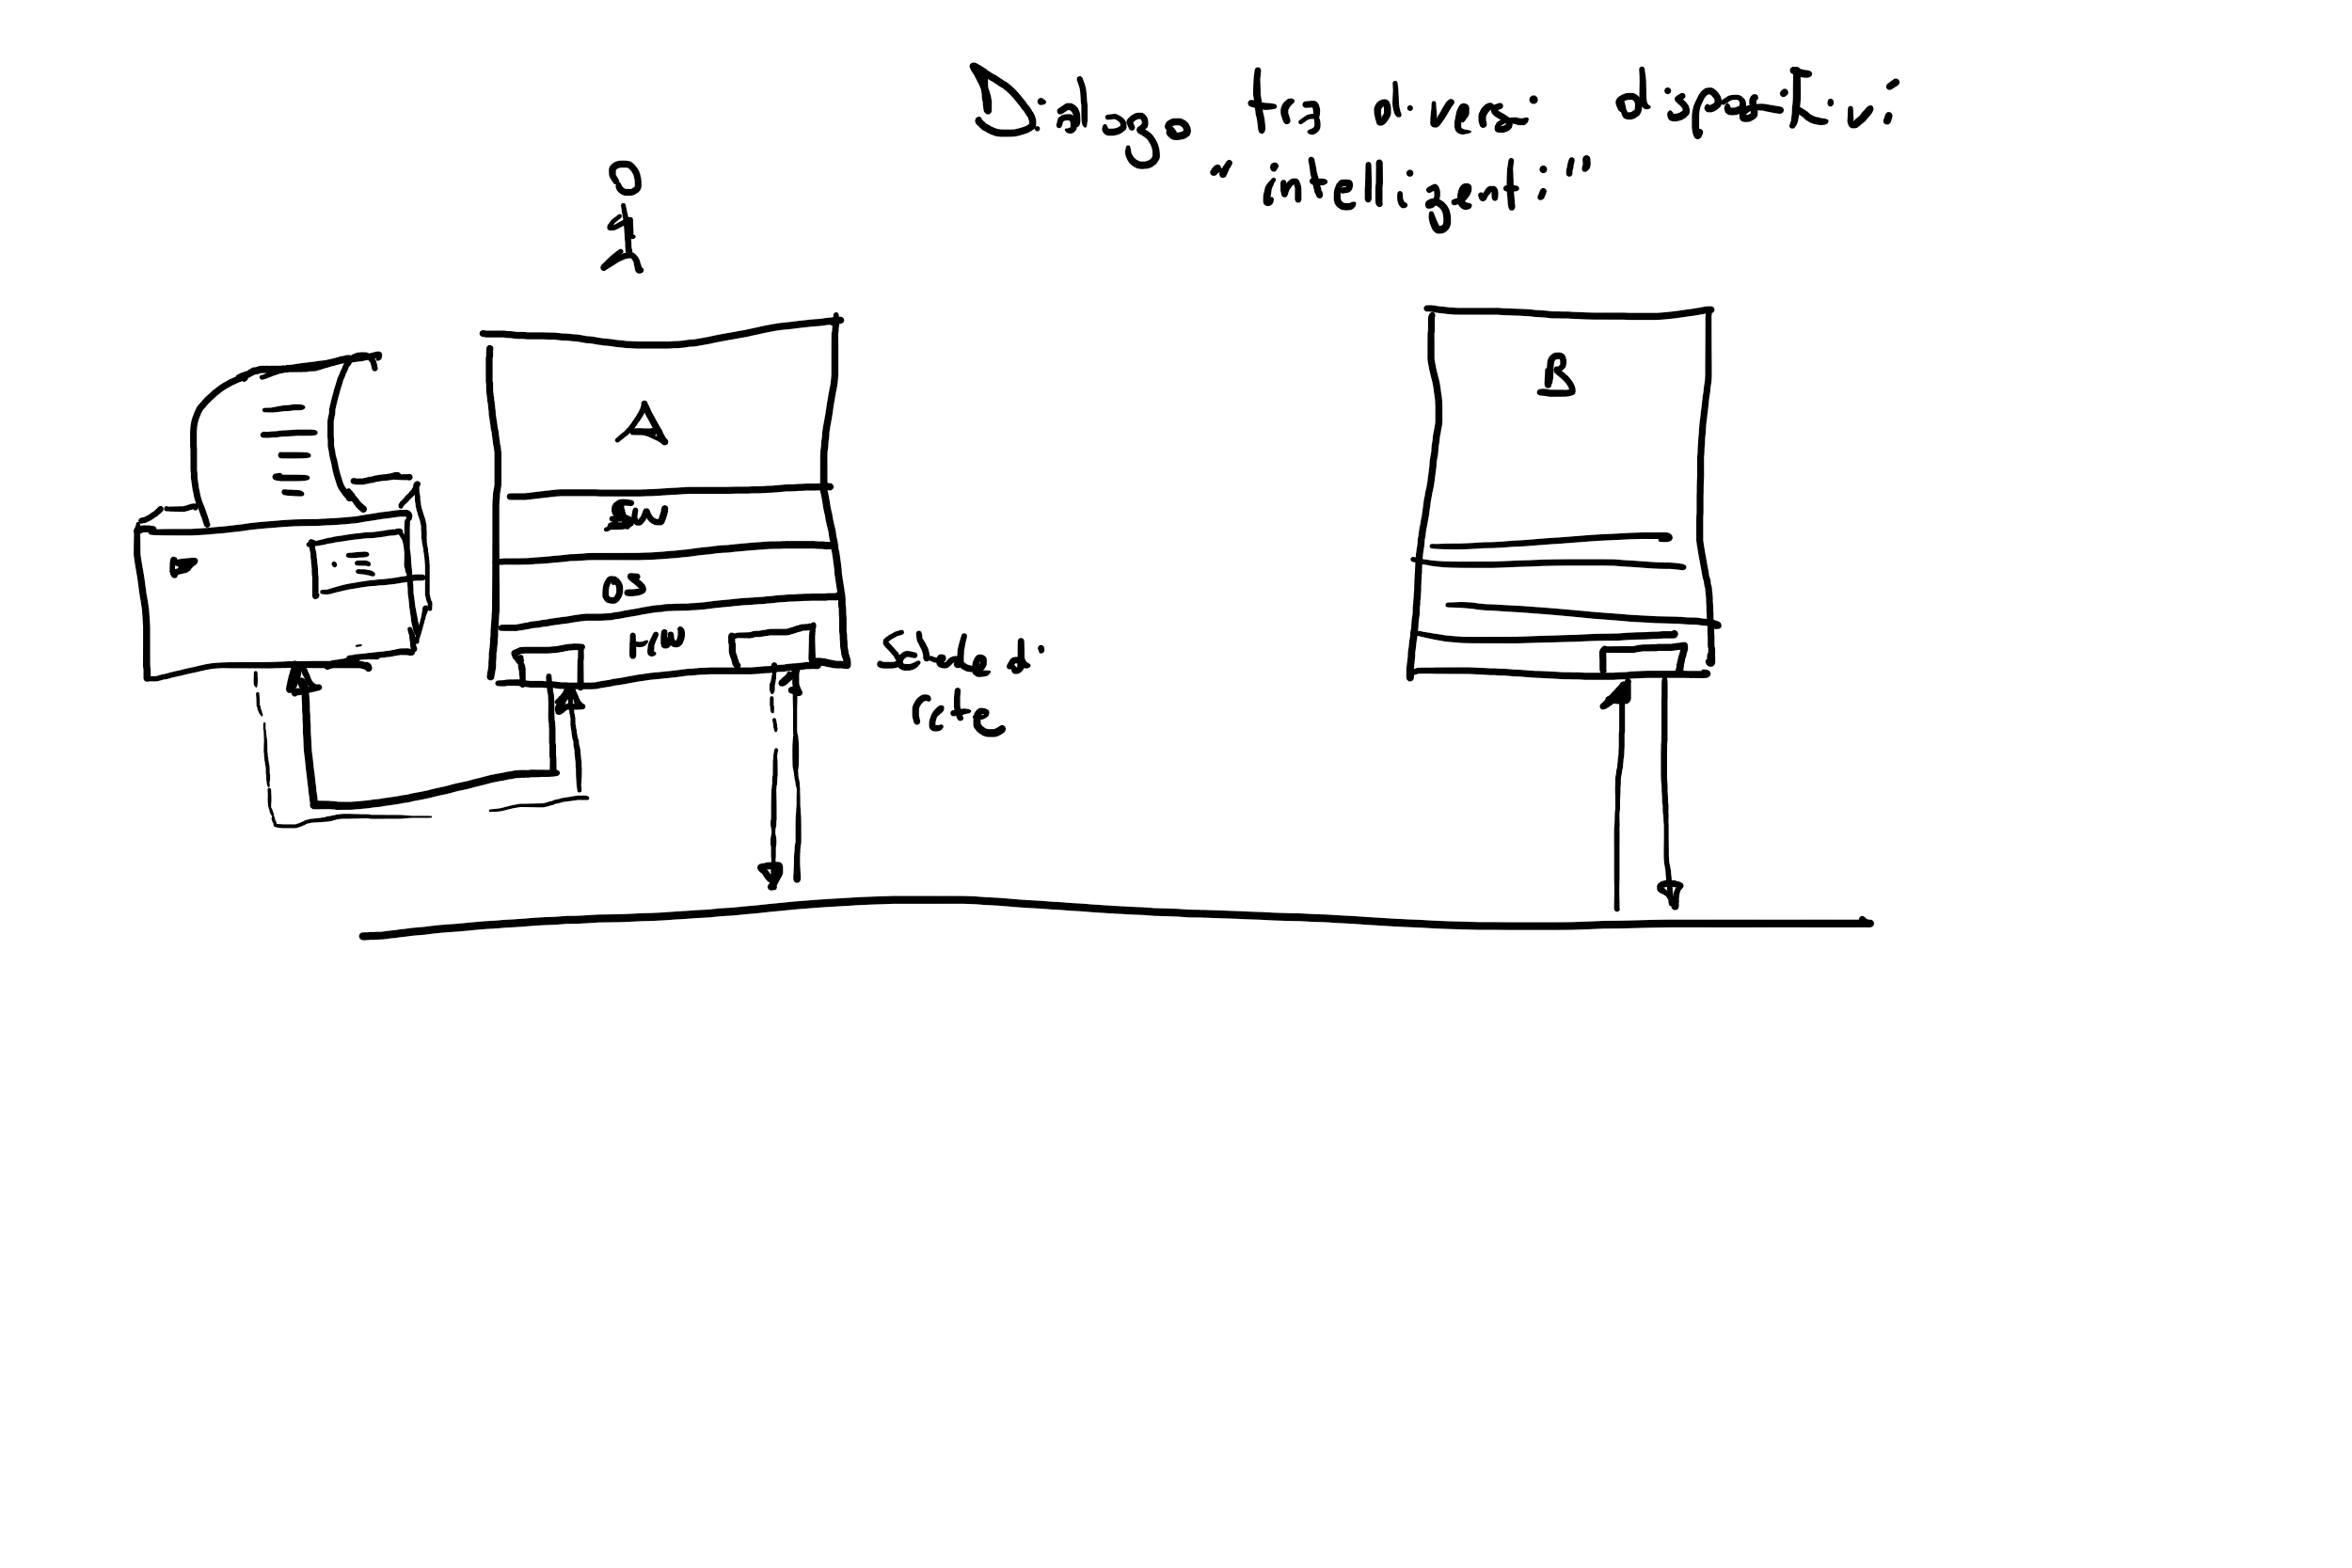 Dialogo tra diversi dispositivi
"intelligenti"
A
B
SW
OS
HW
Scheda di
rete